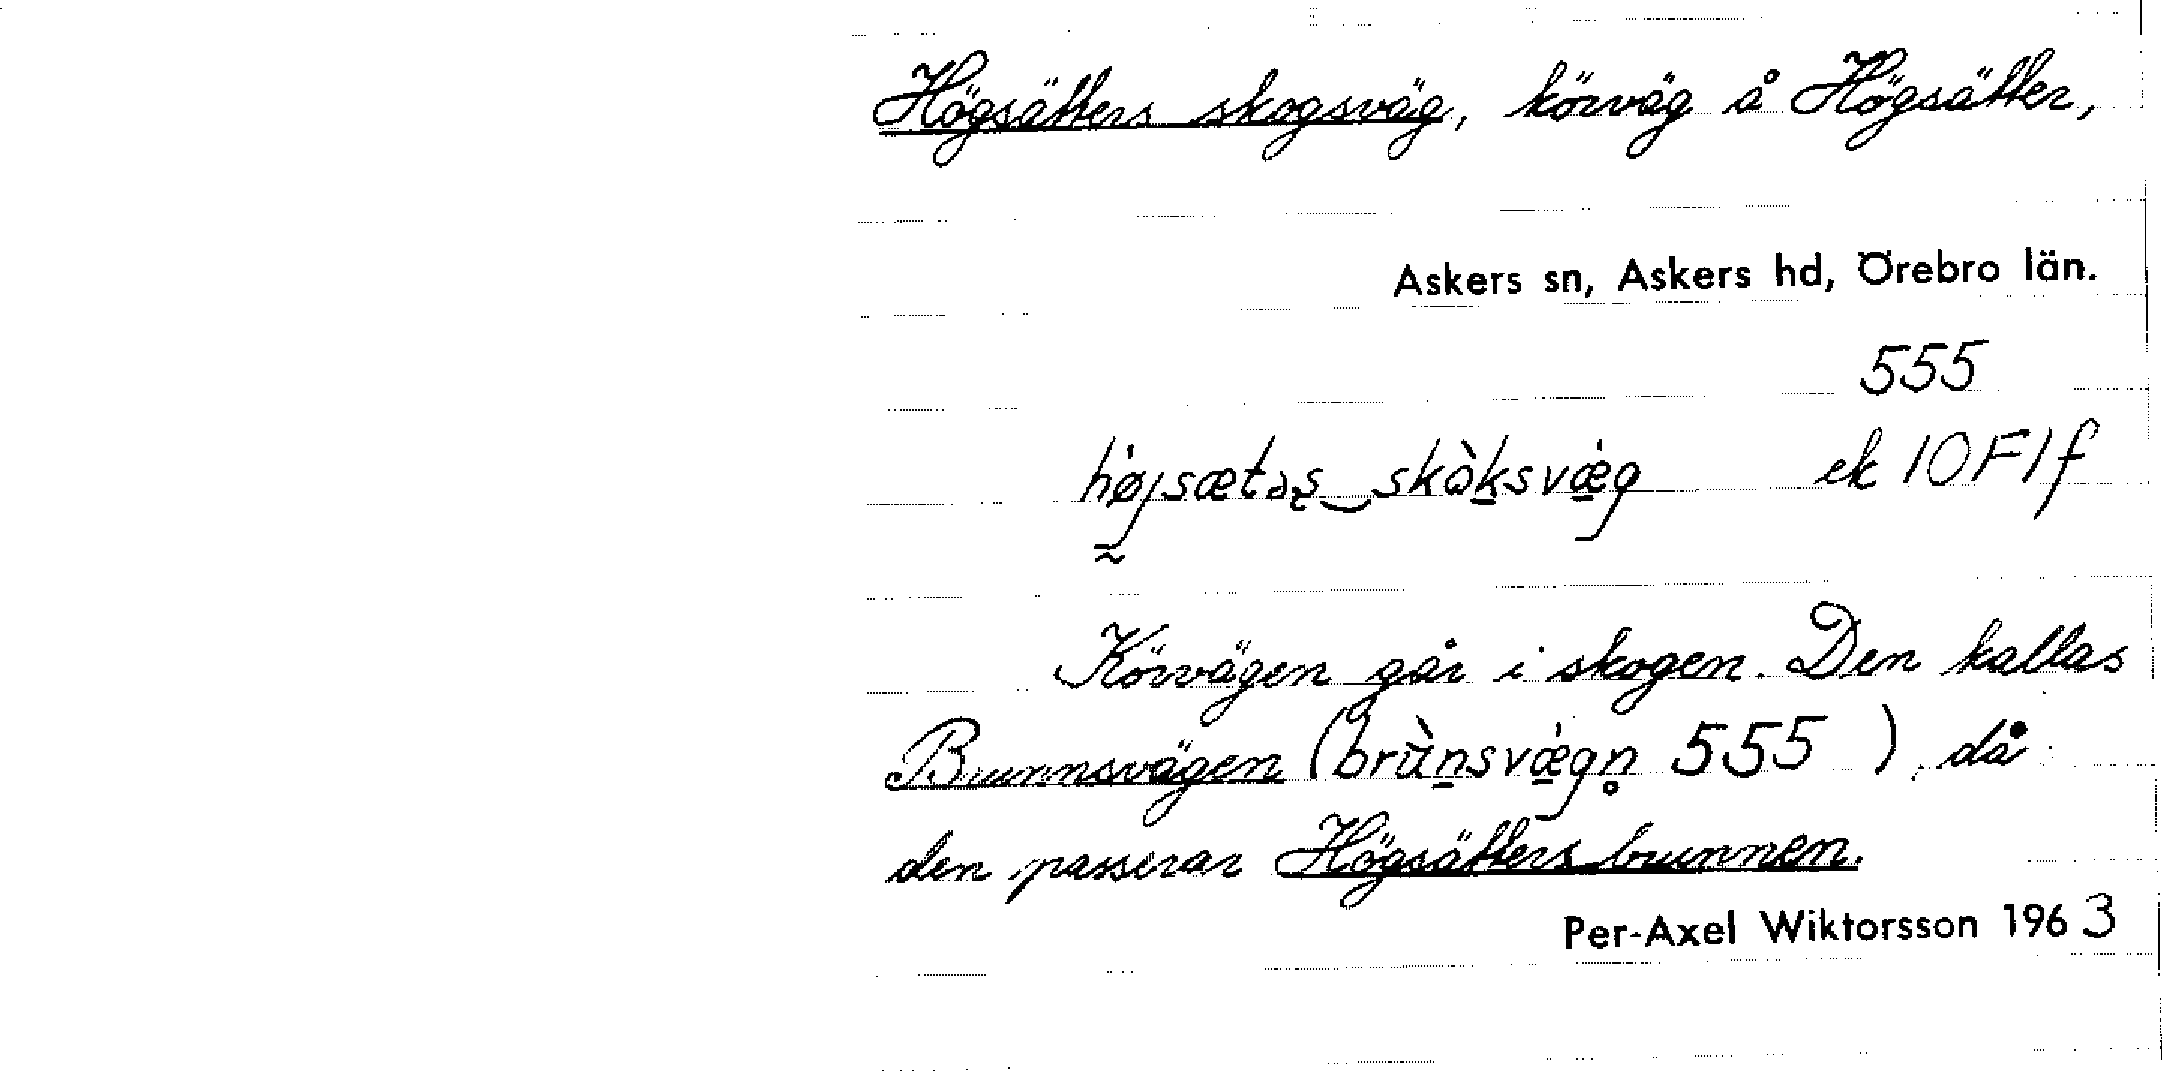 Högsätters skogsväg, körväg å Högsätter,
Askers sn, Askers hd, Örebro län.
555
ek 10F1f
Körvägen går i skogen. Den kallas
Brunnsvägen (brùn̠svæ̠̀gn̥ 555 ), då
den passerar Högsätters brunnen.
Per-Axel Wiktorsson 1963